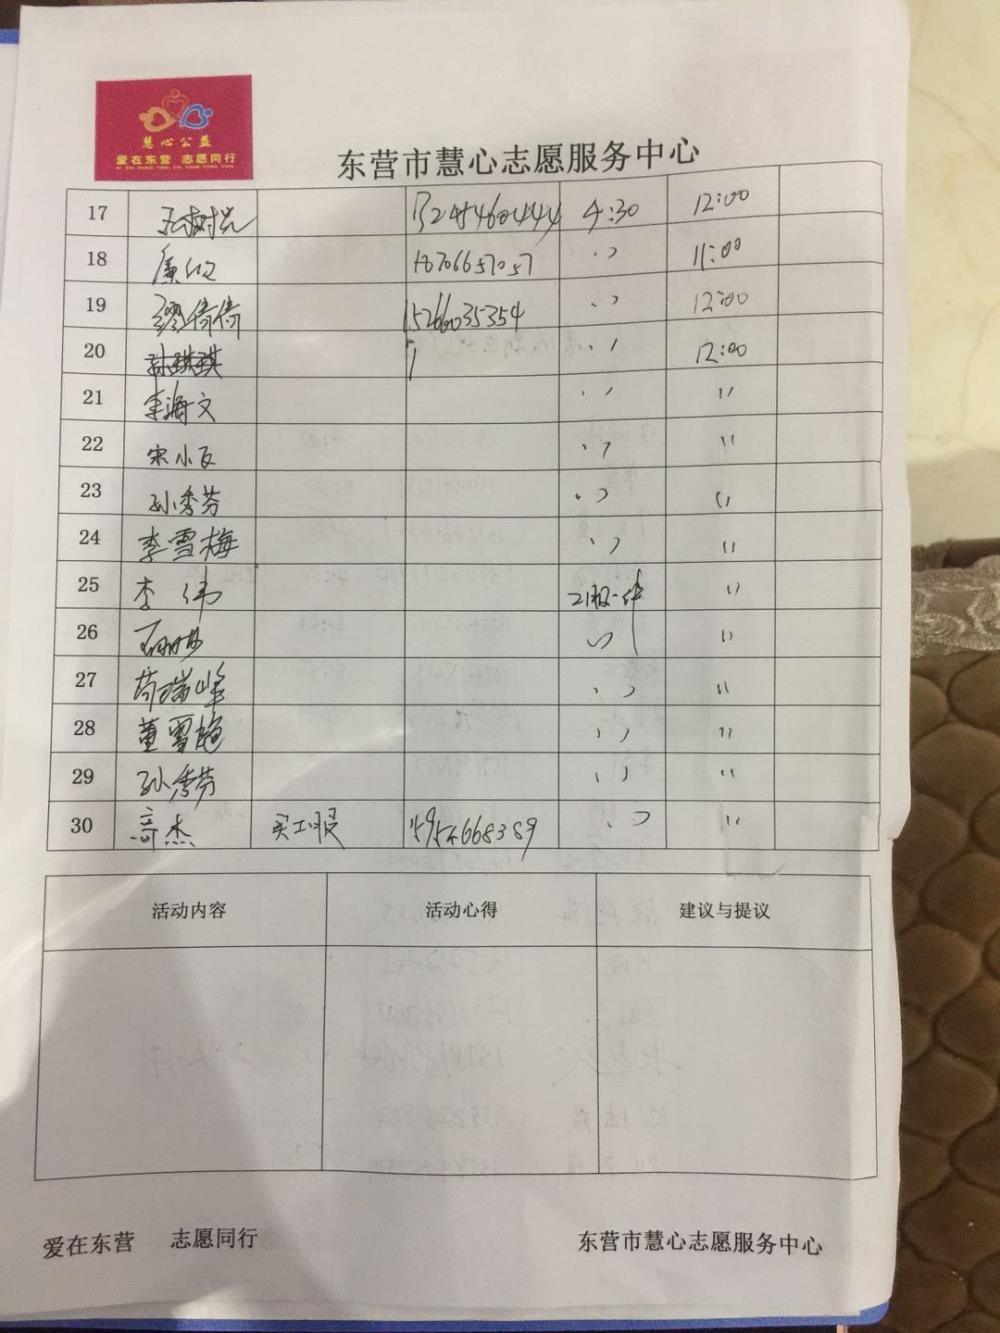 慧心公益
爱在东营 志愿同行
东营市慧心志愿服务中心
17 4:30 12:00
18 廉 18706657057 〃 11:00
19 缪倩倩 15266035354 〃 12:00
20 孙琪琪 1 〃 12:00
21 李海文 〃 〃
22 宋小 〃 〃
23 孙秀芬 〃 〃
24 李雪梅 〃 〃
25 李伟 一件 〃
26 〃 〃
27 苟瑞峰 〃 〃
28 董雪艳 〃 〃
29 孙秀芬 〃 〃
30 高杰 买工服 15954668389 〃 〃
活动内容 活动心得 建议与提议
爱在东营 志愿同行 东营市慧心志愿服务中心